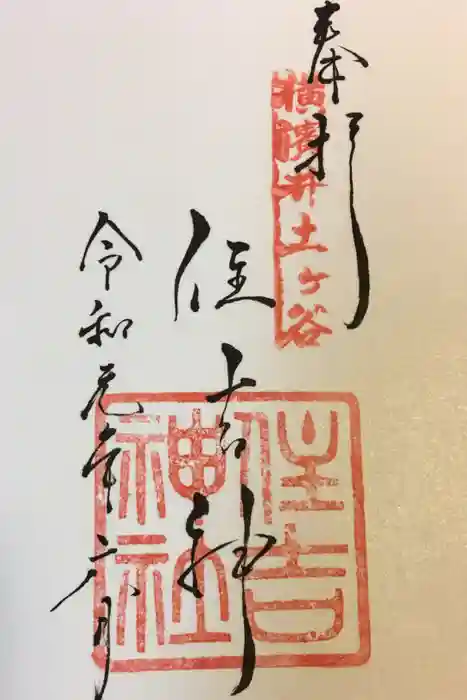 奉拝
横濱井土ヶ谷
住吉神社
住吉神社
令和元年六月